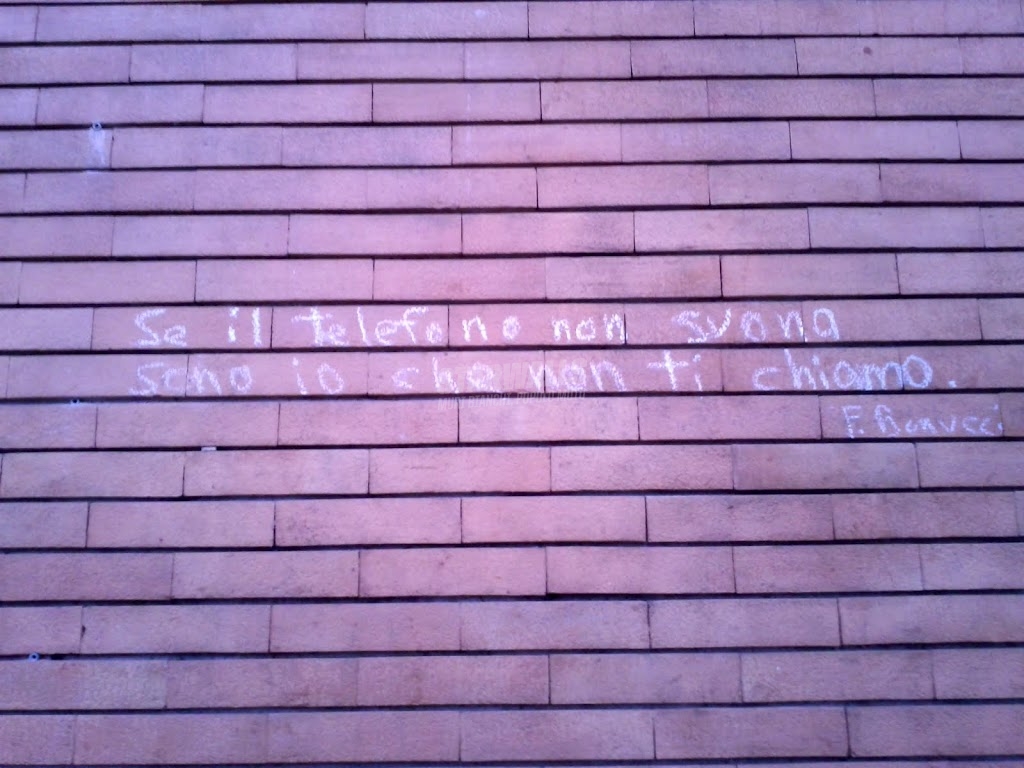 Se il telefono non suona
sono io che non ti chiamo.
F. Bonucci